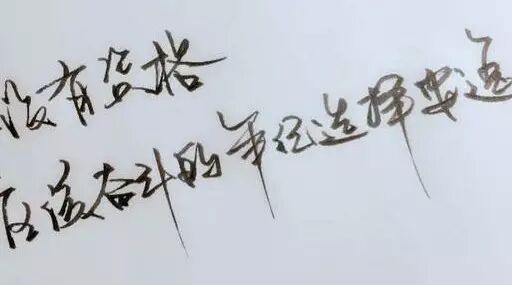 没有资格
在该奋斗的年纪选择安逸